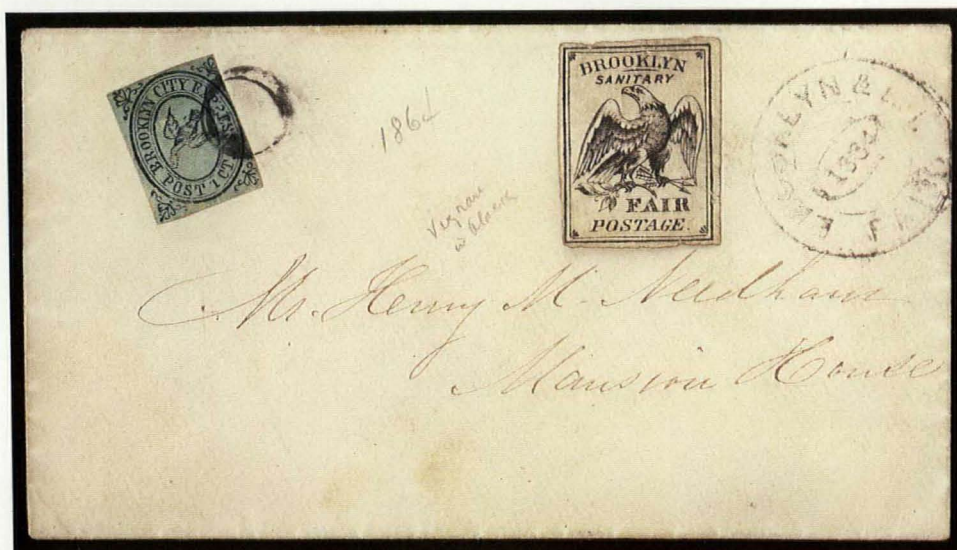 BROOKLYN CITY EXPRESS
POST 1 CT
1864
BROOKLYN
SANITARY
FAIR
POSTAGE.
BROOKLYN & L.I.
FAIR
Mr. Henry M. Needham
Mansion House